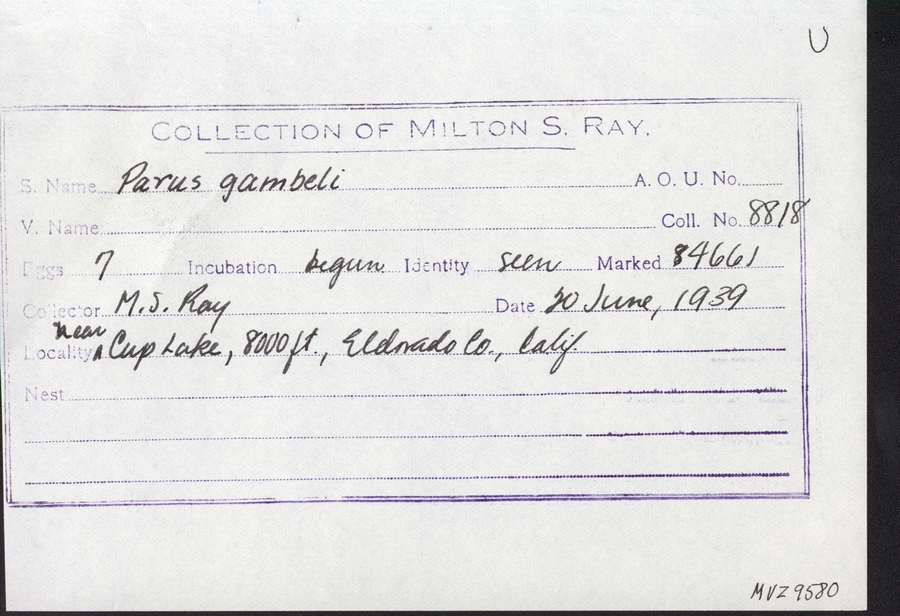 U
COLLECTION OF MILTON S. RAY.
S. Name Parus gambeli A. O. U. No.
V. Name Coll. No. 8818
Eggs 7 Incubation begun Identity seen Marked 84661
Collector M. S. Ray Date 20 June, 1939
Locality near Cup Lake, 8000 ft., Eldorado Co., Calif.
Nest
MVZ 9580